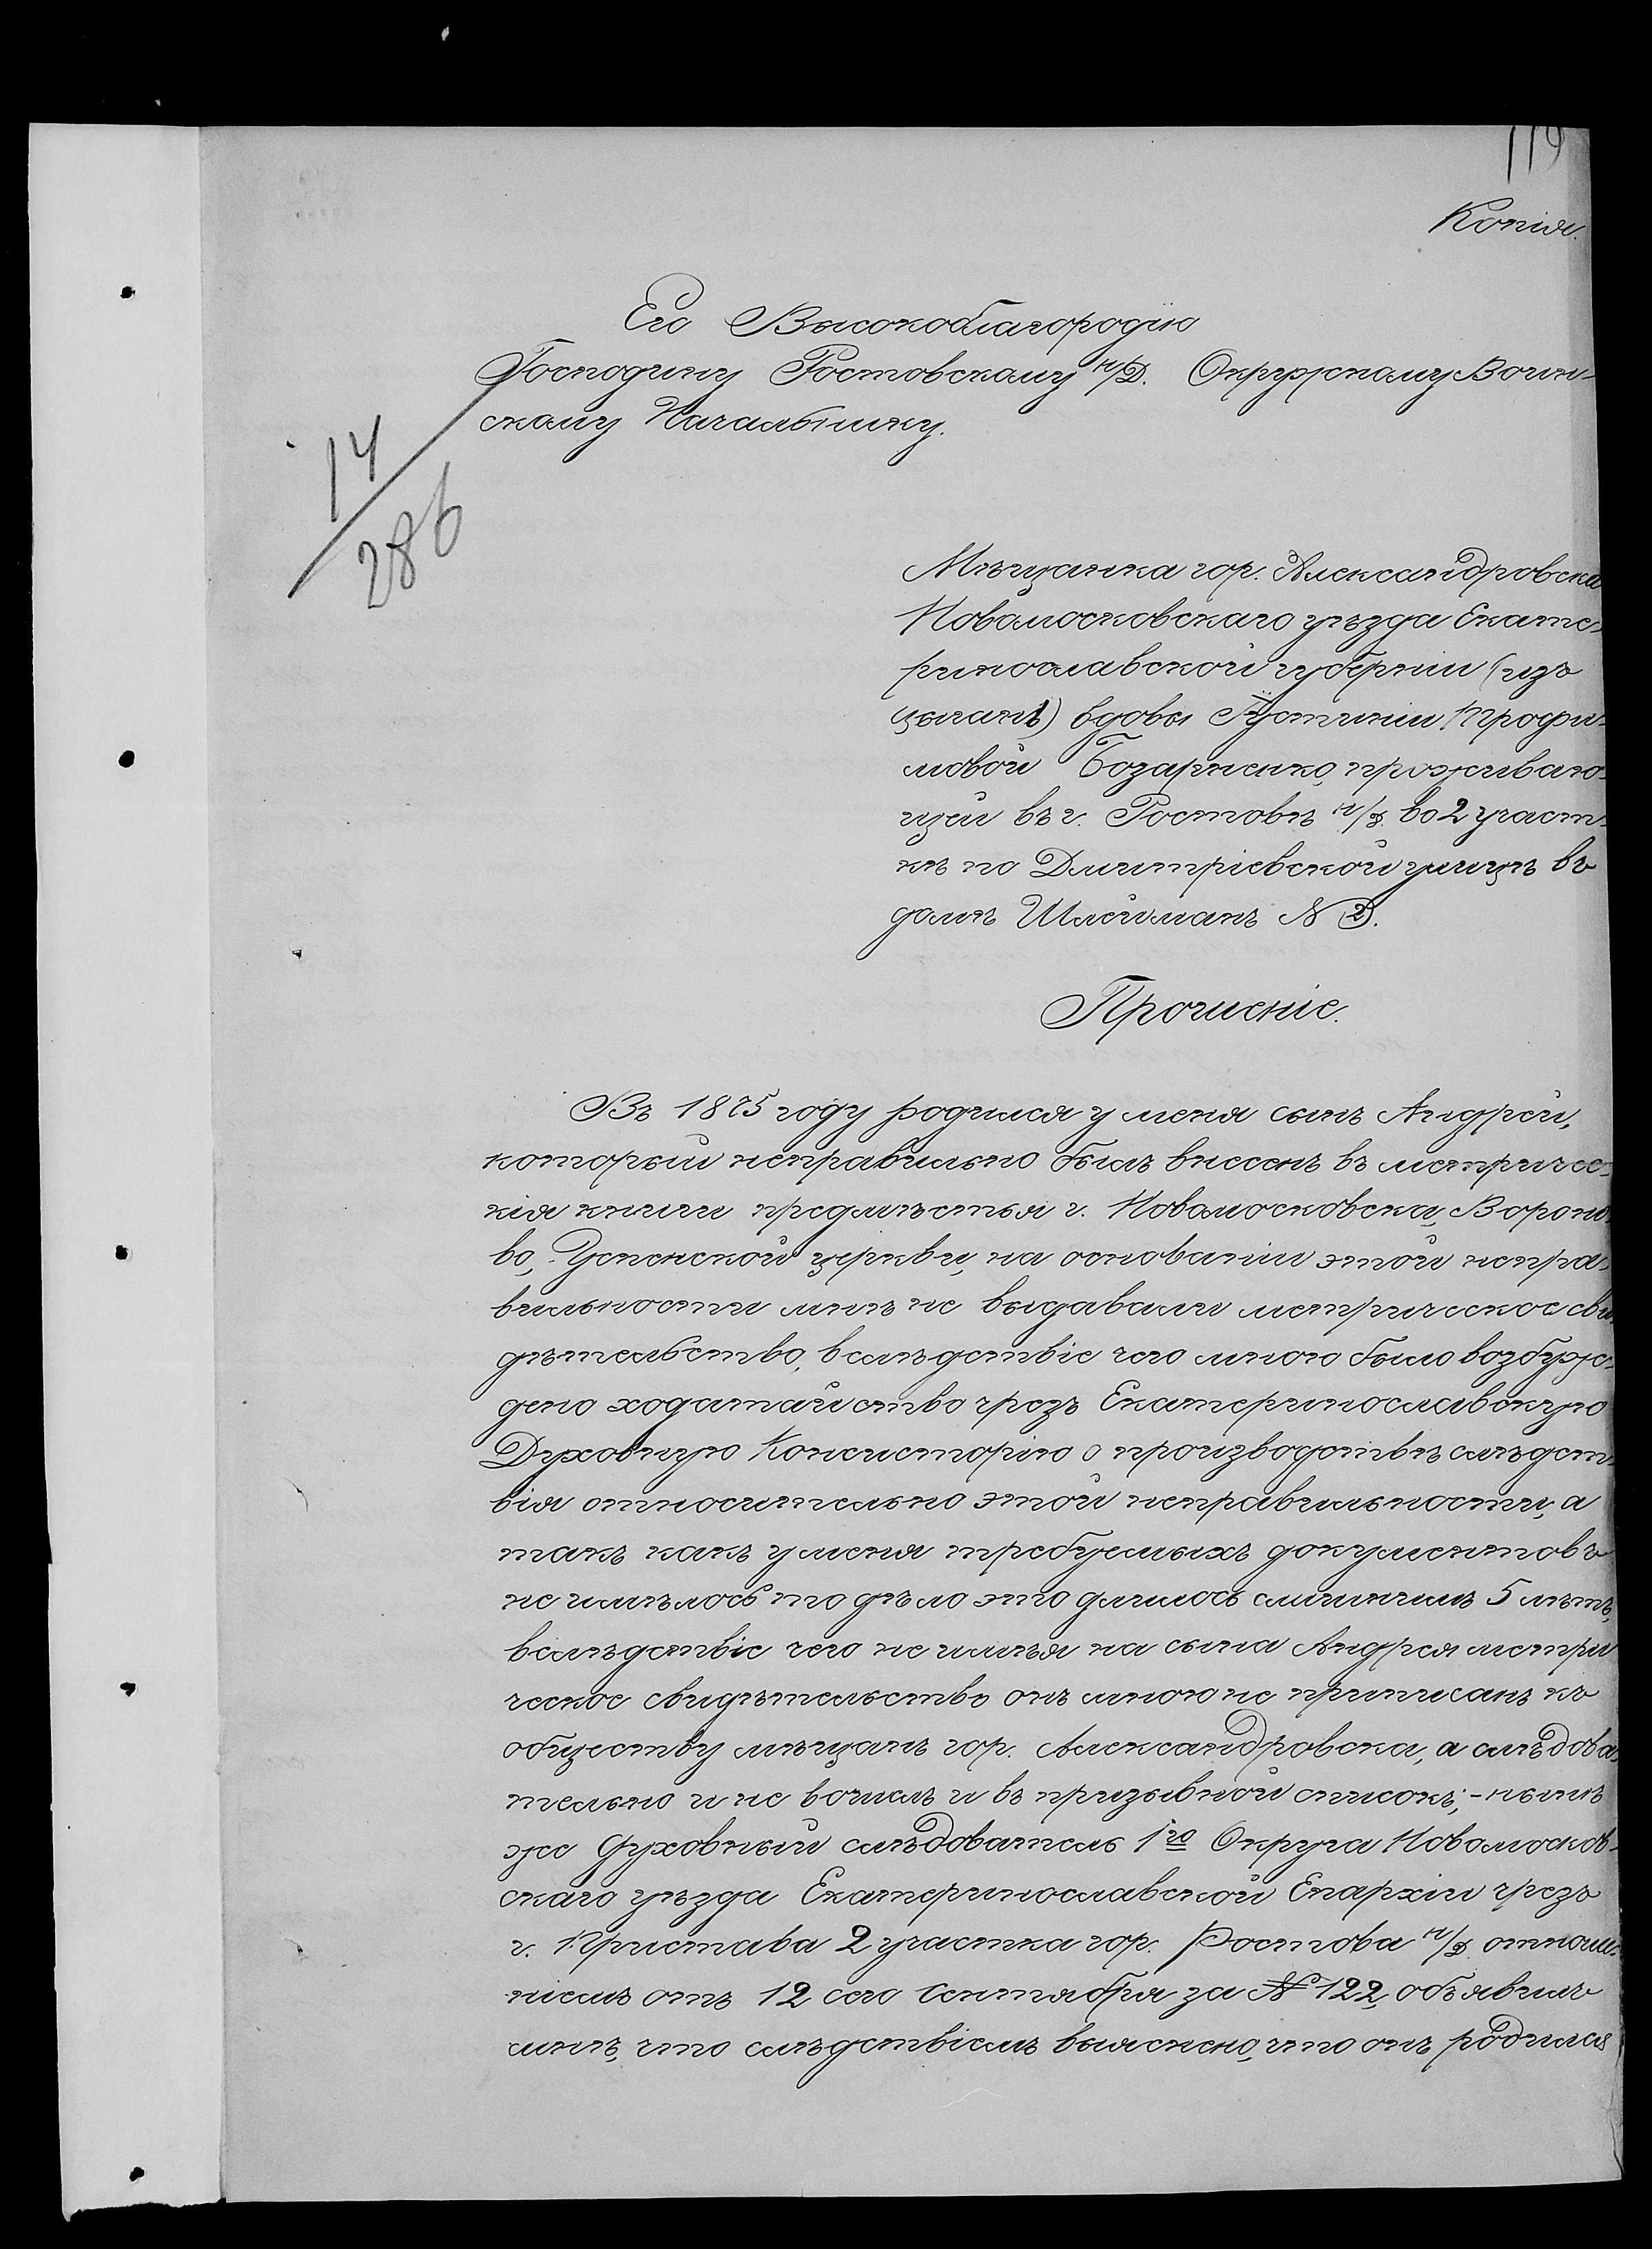 119
Копія.
Его Высокоблагородію
Господину Ростовскому н/Д. Окружному Воин-
скому Начальнику.
14/286
Мѣщанка гор. Александровска
Новомосковскаго уѣзда Екате-
ринославской губерніи (изъ
цыганъ) вдовы Устиніи Трофи-
мовой Бозаренко, проживаю-
щей въ г. Ростовѣ н/Д. во 2 участ-
кѣ по Дмитріевской улицѣ въ
домѣ Шлейманъ № 2.
Прошеніе.
Въ 1875 году родился у меня сынъ Андрей,
который неправильно былъ внесенъ въ метричес-
кія книги предмѣстья г. Новомосковска, Вороно-
во, Успенской церкви, на основаніи этой непра-
вильности мнѣ не выдавали метрическое сви-
дѣтельство, вслѣдствіе чего мною было возбуж-
дено ходатайство чрезъ Екатеринославскую
Духовную Консисторію о производствѣ слѣдст-
вія относительно этой неправильности, а
такъ какъ у меня требуемыхъ документовъ
не имѣлось то дѣло это длилось слишкимъ 5 лѣтъ,
вслѣдствіе чего не имѣя на сына Андрея метри
ческое свидѣтельство онъ мною не приписанъ къ
обществу мѣщанъ гор. Александровска, а слѣдова-
тельно и не вошелъ и въ призывной списокъ; - нынѣ
же Духовный слѣдователь 1го Округа Новомосков-
скаго уѣзда Екатеринославской Епархіи чрезъ
г. Пристава 2 участка гор. Ростова н/Д. отноше-
ніемъ отъ 12 сего Сентября за № 122, объявилъ
мнѣ, что слѣдствіемъ выяснено, что онъ родился